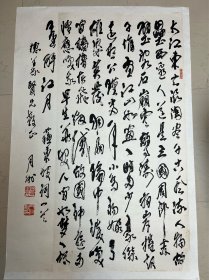 大江東去浪淘盡千古風流人物故
壘西邊人道是三國周郎赤
壁亂石崩雲驚濤拍岸捲起
千堆雪江山如畫一時多少豪傑
遙想公瑾當年小喬初嫁了
雄姿英發羽扇綸巾談笑間
檣櫓灰飛煙滅故國神遊多
情應笑我早生華髮人生如夢一尊
還酹江月 蘇東坡詞一首
賢兄教正